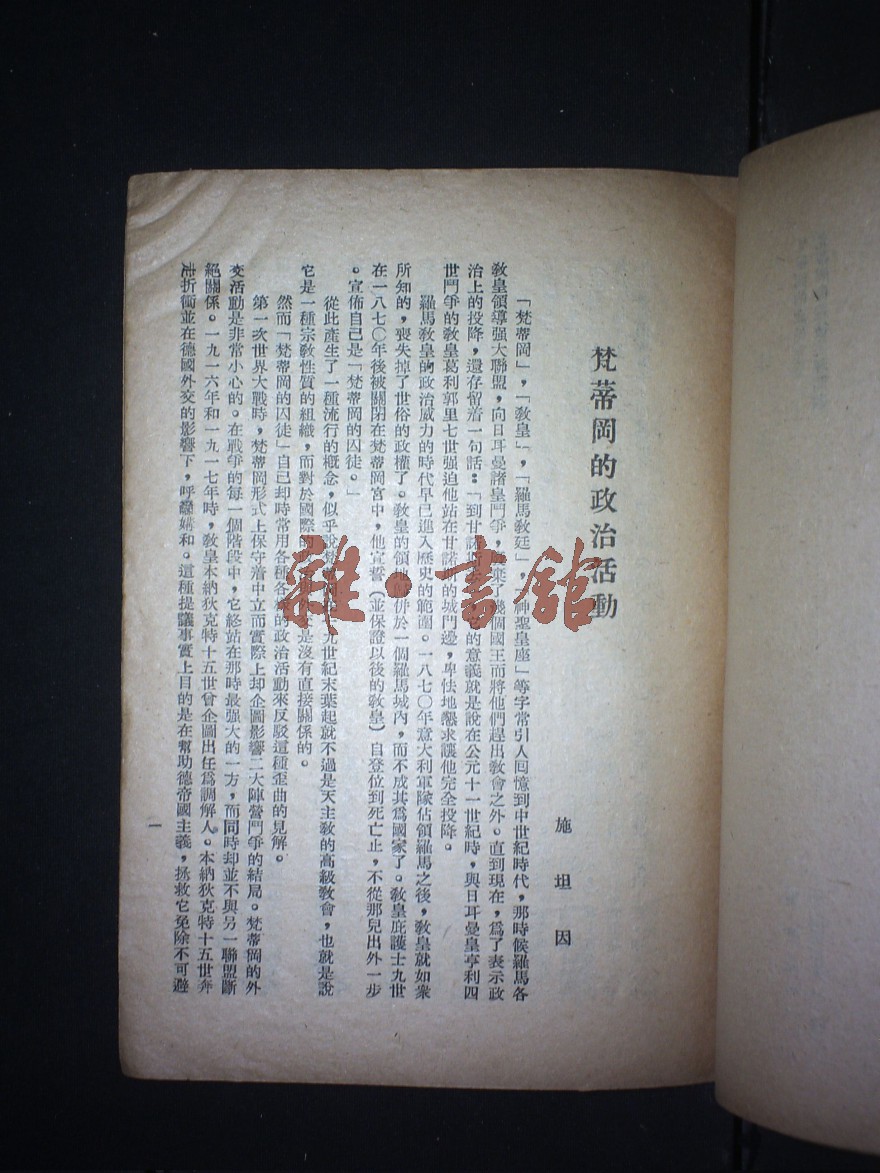 梵蒂岡的政治活動
施坦因
「梵蒂岡」，「敎皇」，「羅馬敎廷」，神聖皇座」等字常引人回憶到中世紀時代，那時候羅馬各
敎皇領導强大聯盟，向日耳曼諸皇鬥爭，棄了幾個國王而將他們趕出敎會之外。直到現在，爲了表示政
治上的投降，還存留着一句話：「到甘諾它的意義就是說在公元十一世紀時，與日耳曼皇亨利四
世鬥爭的敎皇葛利郭里七世强迫他站在甘諾的城門邊，卑怯地懇求讓他完全投降。
羅馬敎皇的政治威力的時代早已進入歷史的範圍。一八七〇年意大利軍隊佔領羅馬之後，敎皇就如衆
所知的，喪失掉了世俗的政權了。敎皇的領地歸併於一個羅馬城內，而不成其爲國家了。敎皇庇護士九世
在一八七〇年後被關閉在梵蒂岡宮中，他宣誓（並保證以後的敎皇）自登位到死亡止，不從那兒出外一步
。宣佈自己是「梵蒂岡的囚徒。」
從此產生了一種流行的概念，似乎說九世紀末葉起就不過是天主敎的高級敎會，也就是說
它是一種宗敎性質的組織，而對於國際的是沒有直接關係的。
然而「梵蒂岡的囚徒」自己却時常用各種各樣的政治活動來反駁這種歪曲的見解。
第一次世界大戰時，梵蒂岡形式上保守着中立而實際上却企圖影響二大陣營鬥爭的結局。梵蒂岡的外
交活動是非常小心的。在戰爭的每一個階段中，它終站在那時最强大的一方，而同時却並不與另一聯盟斷
絕關係。一九一六年和一九一七年時，敎皇本納狄克特十五世曾企圖出任爲調解人。本納狄克特十五世奔
走折衝並在德國外交的影響下，呼籲媾和。這種提議事實上目的是在幫助德帝國主義，拯救它免除不可避
一
雜·書館